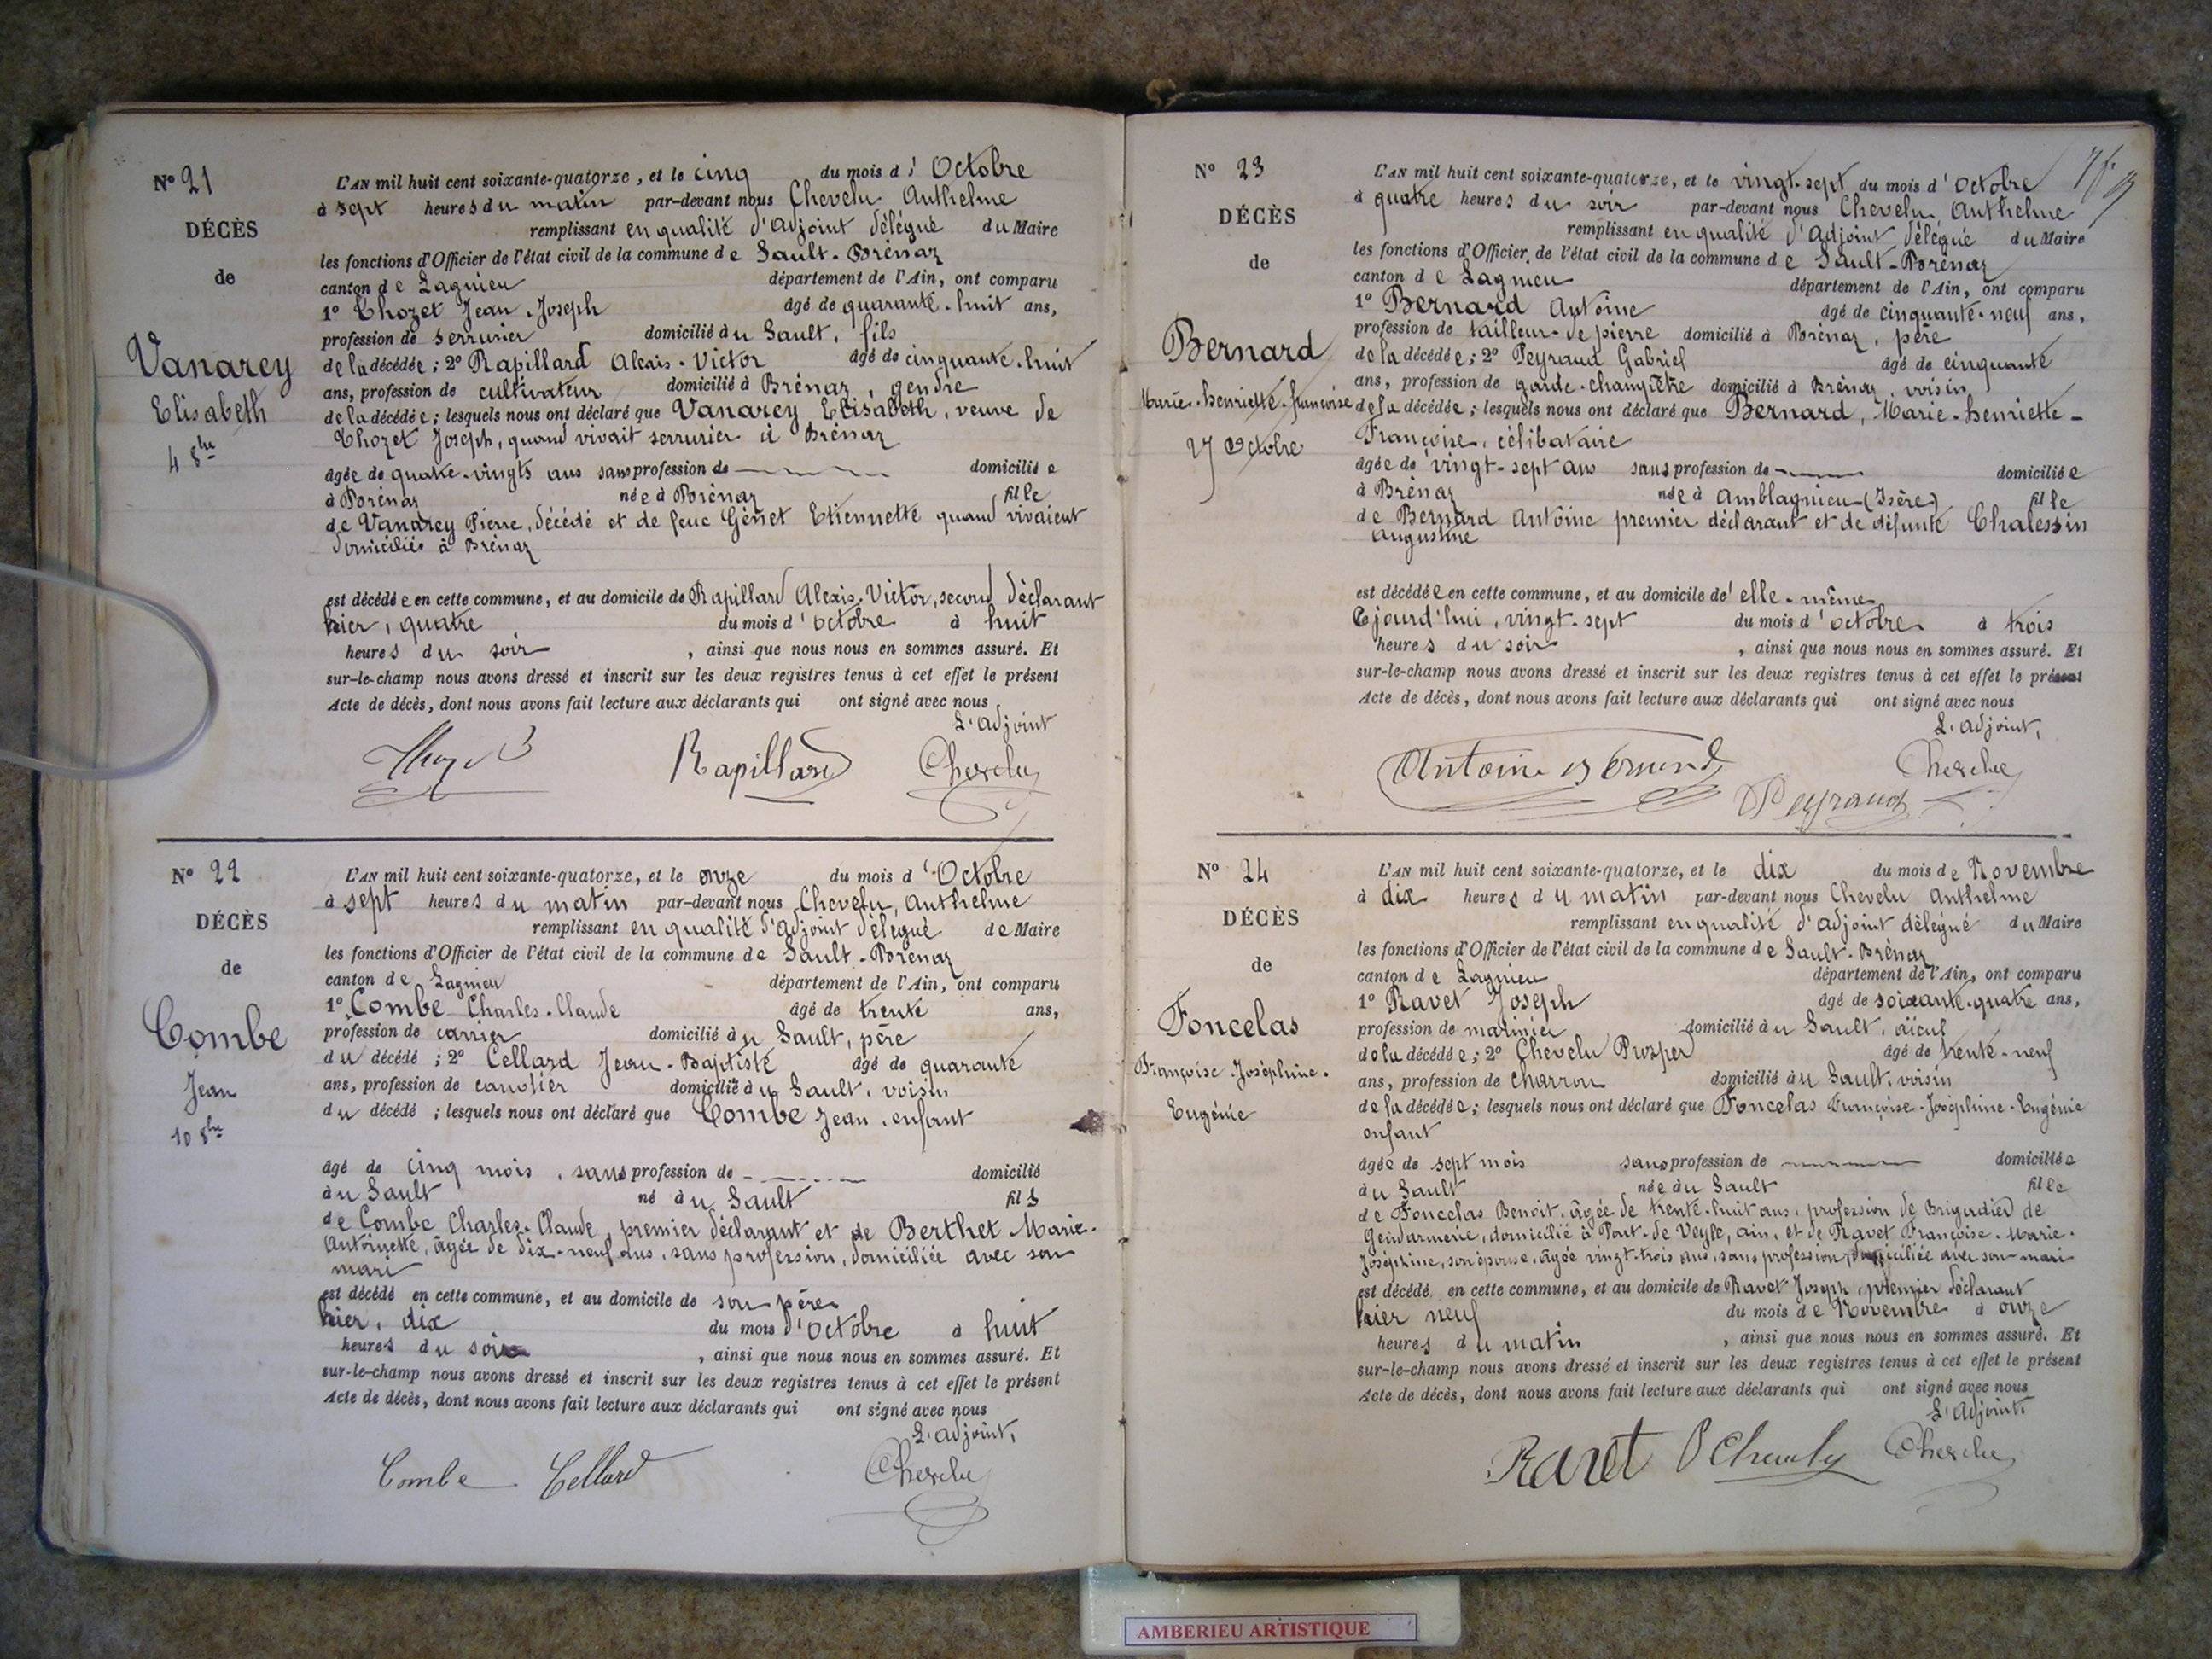 N° 21
DÉCÈS
de
Vanarey
Elisabeth
4 8bre
L'AN mil huit cent soixante-quatorze, et le cinq du mois d'Octobre
à sept heures du matin par-devant nous Chevelu Anthelme
remplissant en qualité d'adjoint délégué du Maire
les fonctions d'Officier de l'état civil de la commune de Sault-Brénaz
canton de Lagnieu département de l'Ain, ont comparu
1° Thozet Jean-Joseph âgé de quarante-huit ans,
profession de serrurier domicilié au Sault, fils
de la décédée; 2° Rapillard Alexis-Victor âgé de cinquante-huit
ans, profession de cultivateur domicilié à Brénaz, gendre
de la décédée; lesquels nous ont déclaré que Vanarey Elisabeth, veuve de
Thozet Joseph, quand vivait serrurier à Brénaz
âgée de quatre-vingts ans sans profession de domiciliée
à Brénaz née à Brénaz fille
de Vanarey Pierre, décédé et de feue Génet Etiennette quand vivaient
domiciliés à Brénaz
est décédée en cette commune, et au domicile de Rapillard Alexis-Victor, second déclarant
hier, quatre du mois d'octobre à huit
heures du soir, ainsi que nous nous en sommes assuré. Et
sur-le-champ nous avons dressé et inscrit sur les deux registres tenus à cet effet le présent
Acte de décès, dont nous avons fait lecture aux déclarants qui ont signé avec nous
L'adjoint
Thozet Rapillard Chevelu
N° 22
DÉCÈS
de
Combe
Jean
10 8bre
L'AN mil huit cent soixante-quatorze, et le onze du mois d'Octobre
à sept heures du matin par-devant nous Chevelu, Anthelme
remplissant en qualité d'adjoint délégué de Maire
les fonctions d'Officier de l'état civil de la commune de Sault-Brénaz
canton de Lagnieu département de l'Ain, ont comparu
1° Combe Charles-Claude âgé de trente ans,
profession de carrier domicilié au Sault, père
du décédé; 2° Cellard Jean-Baptiste âgé de quarante
ans, profession de canotier domicilié au Sault, voisin
du décédé; lesquels nous ont déclaré que Combe Jean, enfant
âgé de cinq mois, sans profession de domicilié
au Sault né au Sault fils
de Combe Charles-Claude, premier déclarant et de Berthet Marie-
Antoinette, âgée de dix-neuf ans, sans profession, domiciliée avec son
mari
est décédé en cette commune, et au domicile de son père
hier, dix du mois d'Octobre à huit
heures du soir, ainsi que nous nous en sommes assuré. Et
sur-le-champ nous avons dressé et inscrit sur les deux registres tenus à cet effet le présent
Acte de décès, dont nous avons fait lecture aux déclarants qui ont signé avec nous
L'adjoint,
Combe Cellard Chevelu
N° 23
DÉCÈS
de
Bernard
Marie-henriette-françoise
27 Octobre
L'AN mil huit cent soixante-quatorze, et le vingt-sept du mois d'Octobre
à quatre heures du soir par-devant nous Chevelu, Anthelme
remplissant en qualité d'adjoint délégué du Maire
les fonctions d'Officier de l'état civil de la commune de Sault-Brénaz
canton de Lagnieu département de l'Ain, ont comparu
1° Bernard Antoine âgé de cinquante-neuf ans,
profession de tailleur-de-pierre domicilié à Brénaz, père
de la décédée; 2° Peyraud Gabriel âgé de cinquante
ans, profession de garde-champêtre domicilié à Brénaz, voisin
de la décédée; lesquels nous ont déclaré que Bernard, Marie-henriette-
Françoise, célibataire
âgée de vingt-sept ans sans profession de domiciliée
à Brénaz née à Amblagnieu (Isère) fille
de Bernard Antoine premier déclarant et de défunte Chalessin
Augustine
est décédée en cette commune, et au domicile d'elle-même
Cejourd'hui, vingt-sept du mois d'octobre à trois
heures du soir, ainsi que nous nous en sommes assuré. Et
sur-le-champ nous avons dressé et inscrit sur les deux registres tenus à cet effet le présent
Acte de décès, dont nous avons fait lecture aux déclarants qui ont signé avec nous
L'adjoint,
Antoine Bernard Chevelu
Peyraud
N° 24
DÉCÈS
de
Foncelas
Françoise Joséphine-
Eugénie
L'AN mil huit cent soixante-quatorze, et le dix du mois de Novembre
à dix heures du matin par-devant nous Chevelu Anthelme
remplissant en qualité d'adjoint délégué du Maire
les fonctions d'Officier de l'état civil de la commune de Sault-Brénaz
canton de Lagnieu département de l'Ain, ont comparu
1° Ravet Joseph âgé de soixante-quatre ans,
profession de marinier domicilié au Sault, aïeul
de la décédée; 2° Chevelu Prosper âgé de trente-neuf
ans, profession de charron domicilié au Sault, voisin
de la décédée; lesquels nous ont déclaré que Foncelas Françoise-Joséphine-Eugénie
enfant
âgée de sept mois sans profession de domiciliée
au Sault née au Sault fille
de Foncelas Benoit, âgée de trente-huit ans, profession de Brigadier de
Gendarmerie, domicilié à Pont-de-Veyle, ain, et de Ravet Françoise-Marie-
Joséphine, son épouse, âgée vingt-trois ans, sans profession, domiciliée avec son mari
est décédé en cette commune, et au domicile de Ravet Joseph, premier déclarant
hier neuf du mois de Novembre à onze
heures du matin, ainsi que nous nous en sommes assuré. Et
sur-le-champ nous avons dressé et inscrit sur les deux registres tenus à cet effet le présent
Acte de décès, dont nous avons fait lecture aux déclarants qui ont signé avec nous
L'adjoint,
Ravet Chevelu
AMBERIEU ARTISTIQUE